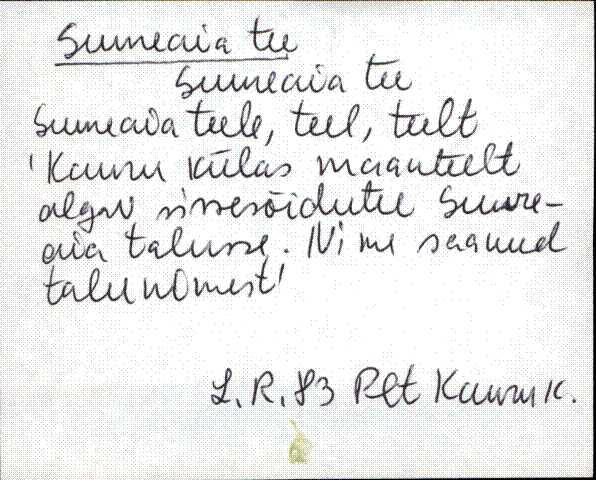 Suureaia tee
Suureaia tee
Suureaia teele, teel, teelt
'Kauru külas maanteelt
algav sissesõidutee Suure-
aia talusse. Nime saanud
talu nimest'
L.R. 83 Plt Kauru k.